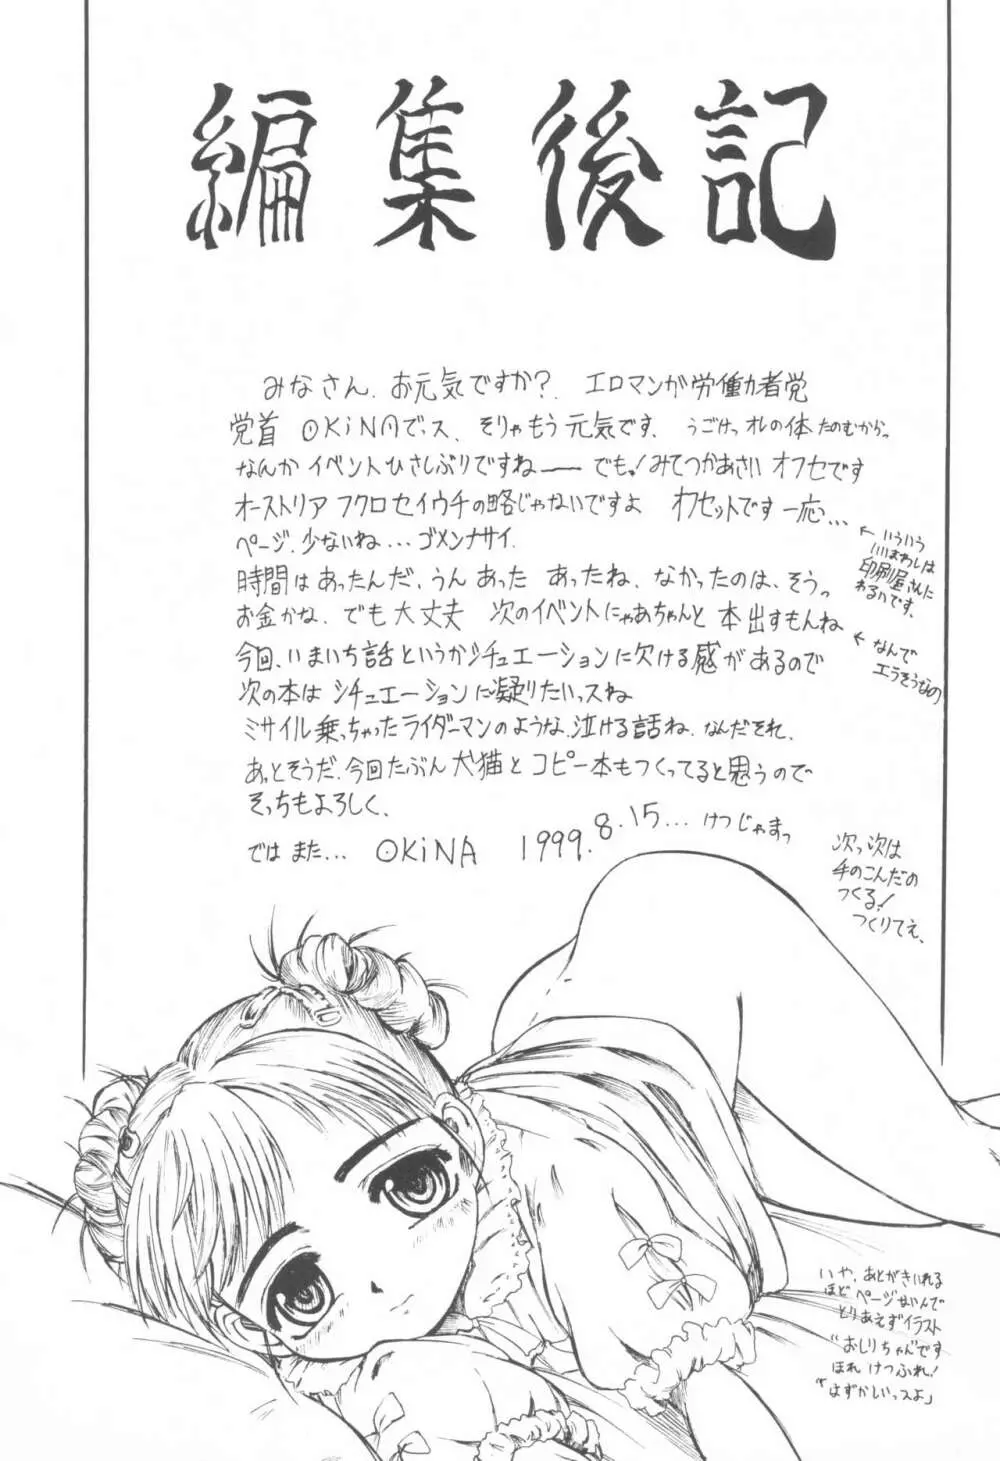 編集後記
みなさん、お元気ですか?、エロマンガ労働者党
党首 OKiNAでっス、そりゃもう元気です、うごけっオレの体たのむからっ
なんかイベントひさしぶりですね―― でもっ!みてつかあさい オフセです
オーストリア フクロセイウチの略じゃないですよ オフセットです一応...
ページ、少ないね...ゴメンナサイ、
←いういう
いいまわしは
印刷屋さんに
わるいです、
時間はあったんだ、うんあった あったね、なかったのは、そうっ
お金かな、でも大丈夫 次のイベントにゃあちゃんと本出すもんね
←なんで
エラそうなの
今回、いまいち話というかシチュエーションに欠ける感があるので
次の本は シチュエーションに凝りたいっスね
ミサイル乗っちゃったライダーマンのような、泣ける話ね、なんだそれ、
あっとそうだ、今回たぶん犬猫とコピー本もつくってると思うので
そっちもよろしく、
では また... OKiNA 1999.8.15...けつじゃまっ
次っ次は
手のこんだの
つくる!
つくりてえ、
いや、あとがきいれる
ほどページないんで
とりあえずイラスト
"おしりちゃん"です
ほれ けつふれ!
「はずかしいっスよ」